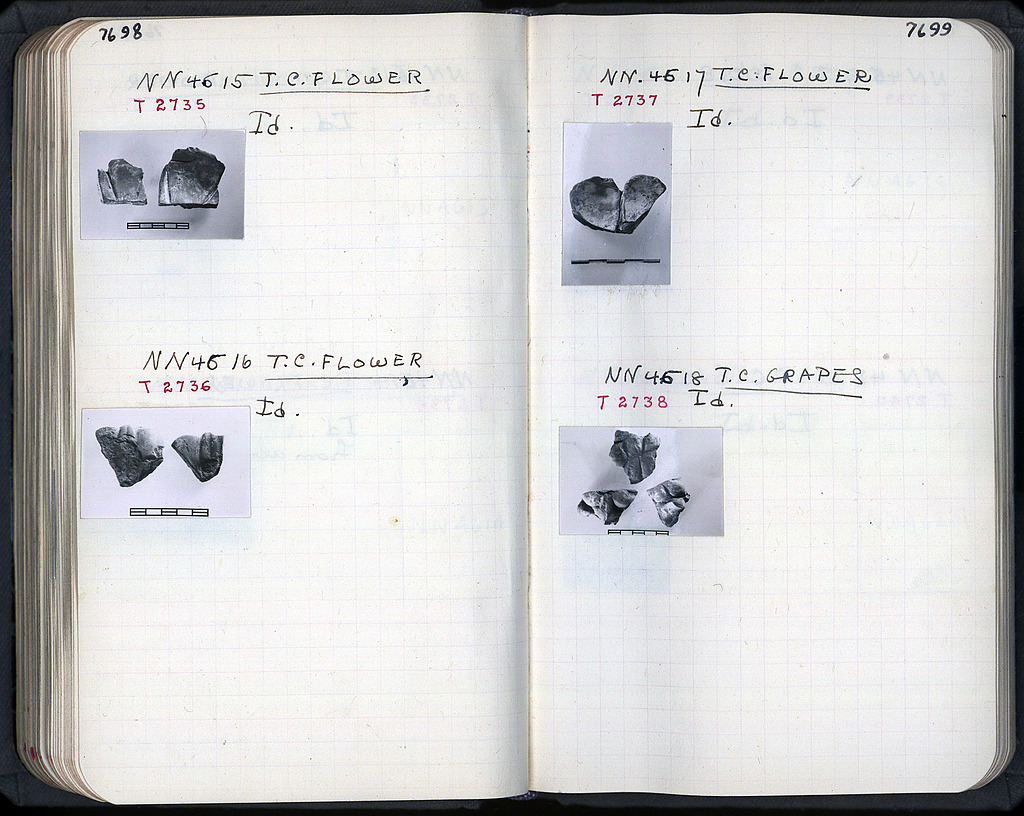 7698
NN4515 T.C.FLOWER
T 2735
Id.
NN4516 T.C.FLOWER
T 2736
Id.
7699
NN.4517 T.C.FLOWER
T 2737
Id.
NN4518 T.C.GRAPES
T 2738
Id.